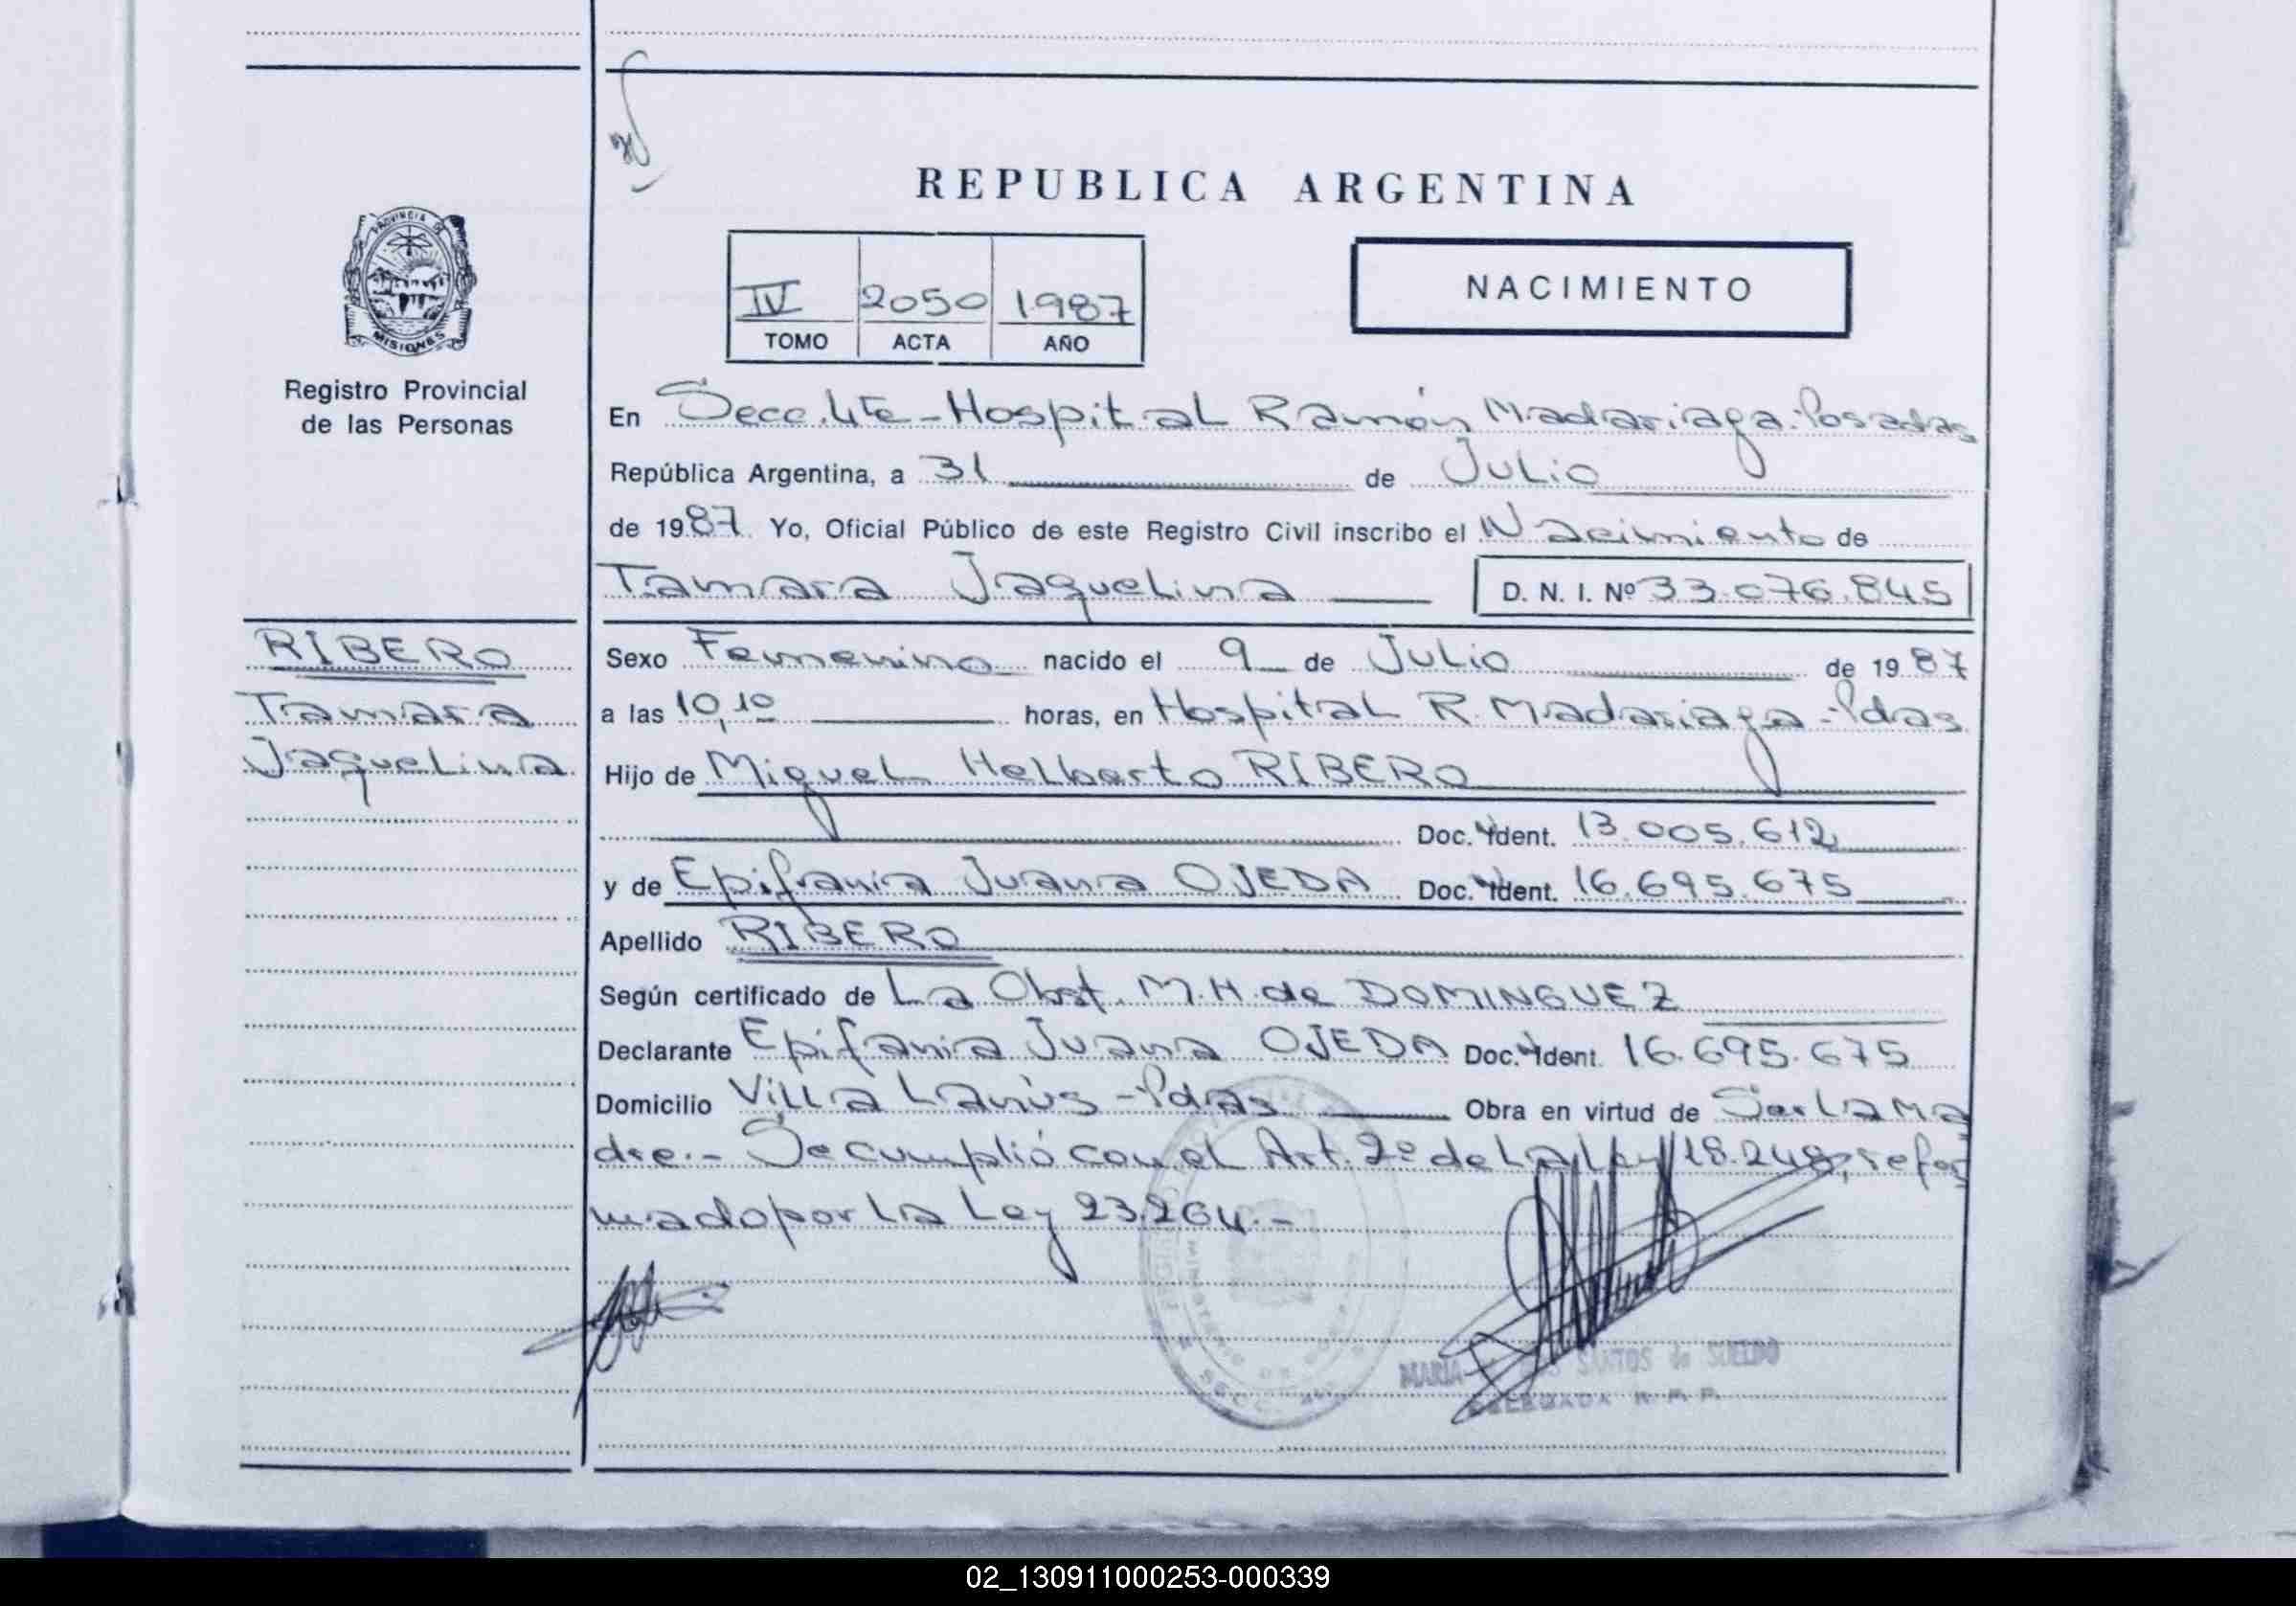 REPUBLICA ARGENTINA
IV 2050 1987
TOMO ACTA AÑO
NACIMIENTO
PROVINCIA DE
MISIONES
Registro Provincial
de las Personas
En Secc. 4ta - Hospital Ramón Madariaga. Posadas
República Argentina, a 31 de Julio
de 1987 Yo, Oficial Público de este Registro Civil inscribo el Nacimiento de
Tamara Jaquelina D. N. I. Nº 33.076.845
RIBERO
Tamara
Jaquelina
Sexo Femenino nacido el 9 de Julio de 1987
a las 10,10 horas, en Hospital R. Madariaga - Pdas
Hijo de Miguel Helberto RIBERO
Doc. Ident. 13.005.612
y de Epifania Juana OJEDA Doc. Ident. 16.695.675
Apellido RIBERO
Según certificado de La Obst. M.H. de DOMINGUEZ
Declarante Epifania Juana OJEDA Doc. Ident. 16.695.675
Domicilio Villa Lanús - Pdas Obra en virtud de Ser La Ma
dre.- Se cumplió con el Art. 2º de La Ley 18.248, refor
mado por La Ley 23.264.-
MARIA SANTOS de SUELDO
DELEGADA R. P. P.
02_130911000253-000339